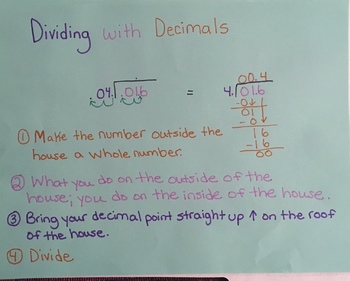 Dividing with Decimals
.04.⟌.01.6 = 4.⟌01.6
00.4
-0↓
01
-0↓
16
-16
00
① Make the number outside the
house a whole number.
② What you do on the outside of the
house; you do on the inside of the house.
③ Bring your decimal point straight up ↑ on the roof
of the house.
④ Divide